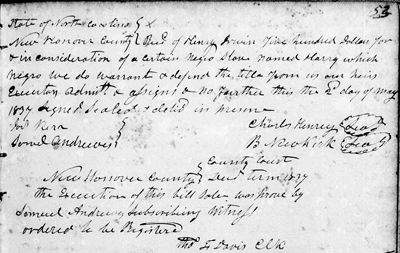 53
State of North Carolina
New Hanover County Recd of Henry five hundred Dollars for
& in consideration of a certain Negro Slave named Harry which
Negro we do warrant & defend the title from us our heirs
Executors admrs & assigns & no farther this the 2d day of may
1837 signed Sealed & delivd in presence
Charles Henry Seal
Samel Andrews
B Newkirk Seal
County Court
New Hanover County term 1837
the Execution of this bill Sale was prove by
Samuel Andrews Subscribing Witness
ordered to be Registered
Davis Clk